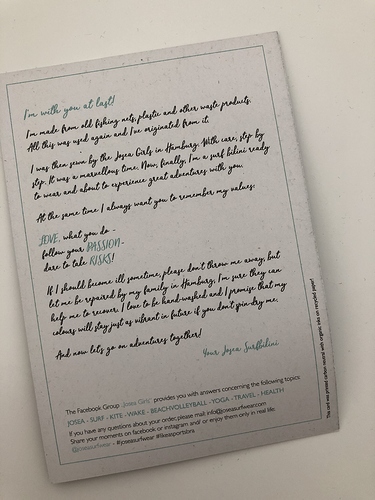 I'm with you at last!
I'm made from old fishing nets, plastic and other waste products.
All this was used again and I've originated from it.
I was then sewn by the Josea Girls in Hamburg. With care, step by
step. It was a marvellous time. Now, finally, I'm a surf bikini ready
to wear and about to experience great adventures with you.
At the same time I always want you to remember my values:
LOVE, what you do -
follow your PASSION -
dare to take RISKS!
If I should become ill sometime, please don't throw me away, but
let me be repaired by my family in Hamburg. I'm sure they can
help me to recover. I love to be hand-washed and I promise that my
colours will stay just as vibrant in future if you don't spin-dry me.
And now let's go on adventures together!
Your Josea Surfbikini
The Facebook Group "Josea Girls" provides you with answers concerning the following topics:
JOSEA - SURF - KITE - WAKE - BEACHVOLLEYBALL - YOGA - TRAVEL - HEALTH
If you have any questions about your order, please mail: info@joseasurfwear.com
Share your moments on facebook or instagram and/ or enjoy them only in real life:
@joseasurfwear - #joseasurfwear #likeasportsbini
This card was printed carbon neutral with organic inks on recycled paper!